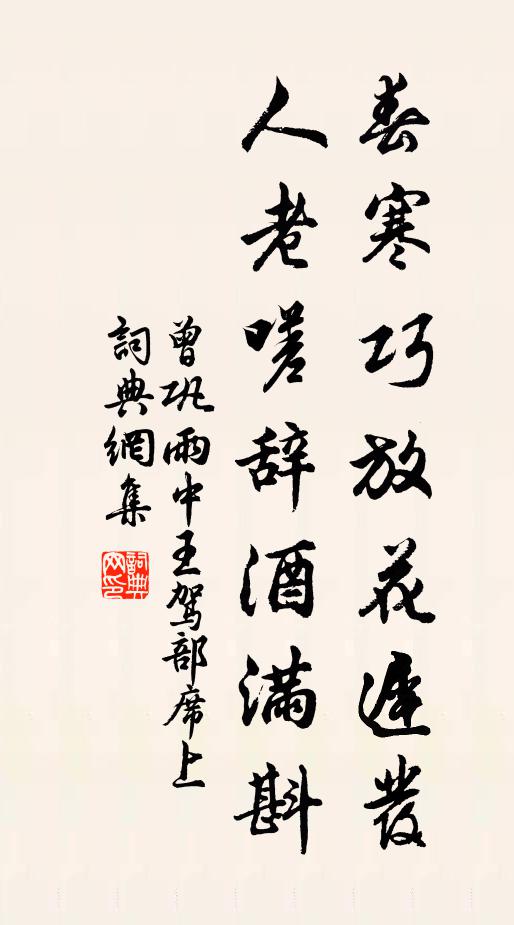 春寒巧放花遲發
人老嗟辞酒满斟
曾巩雨中王駕部席上
詞典網集
詞典网印